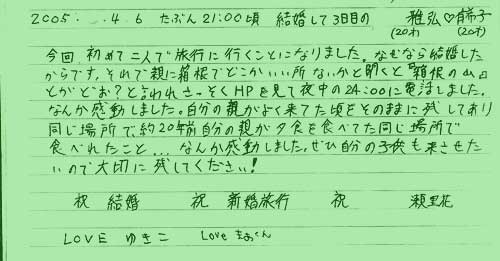 2005. .4.6 たぶん21:00頃 結婚して3日目の 雅弘♡郁子
(20才) (20才)
今回、初めて二人で旅行に行くことになりました。なぜなら結婚した
からです。それで親に箱根でどこかいい所ないかと聞くと『箱根の
とかどお?と言われさっそくHPを見て夜中の24:00に電話しました。
なんか感動しました。自分の親がよく来てた頃をそのままに残しており
同じ場所で約20年前自分の親が夕食を食べてた同じ場所で
食べれたこと...なんか感動しました。ぜひ自分の子供も来させた
いので大切に残してください!
祝 結婚 祝 新婚旅行 祝 瀬里花
LOVE ゆきこ Love まあくん